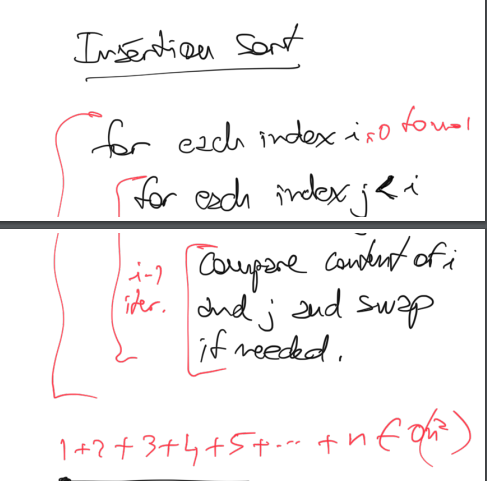 Insertion Sort
for each index i=0 to n-1
for each index j<i
i-1 iter.
Compare content of i
and j and swap
if needed.
1+2+3+4+5+...+n ∈ O(n²)